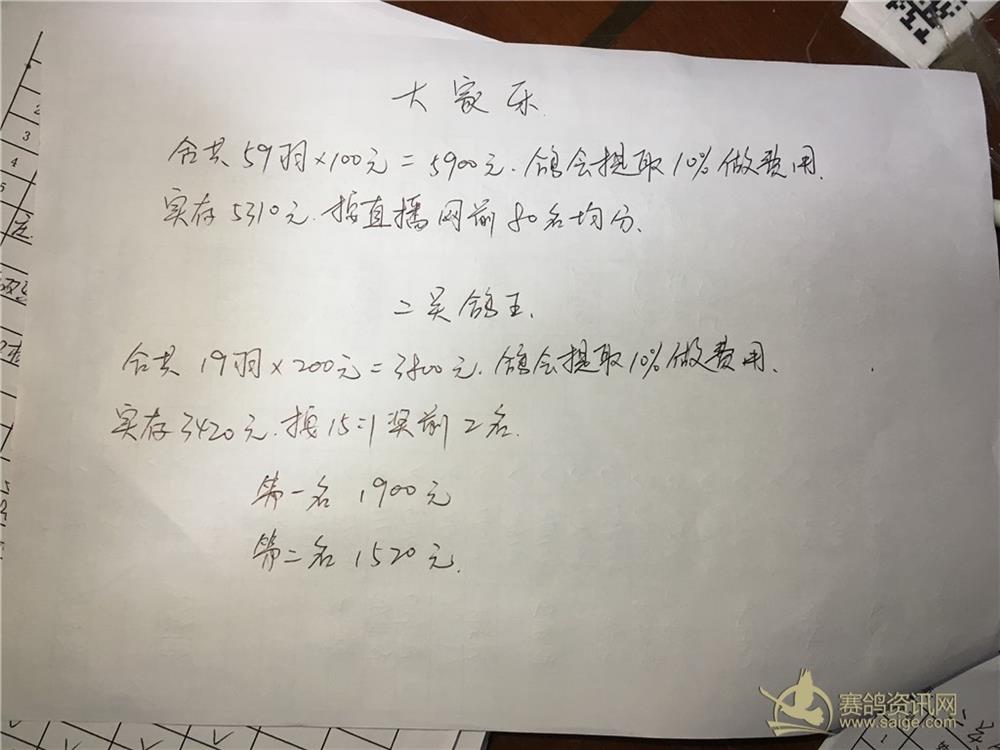 大家乐
合共59羽×100元=5900元.鸽会提取10%做费用.
实存5310元.按直播网前80名均分.
二关鸽王.
合共19羽×200元=3800元.鸽会提取10%做费用.
实存3420元.按15:1奖前2名.
第一名 1900元
第二名 1520元.
2
3
4
5
赛鸽资讯网
www.saige.com